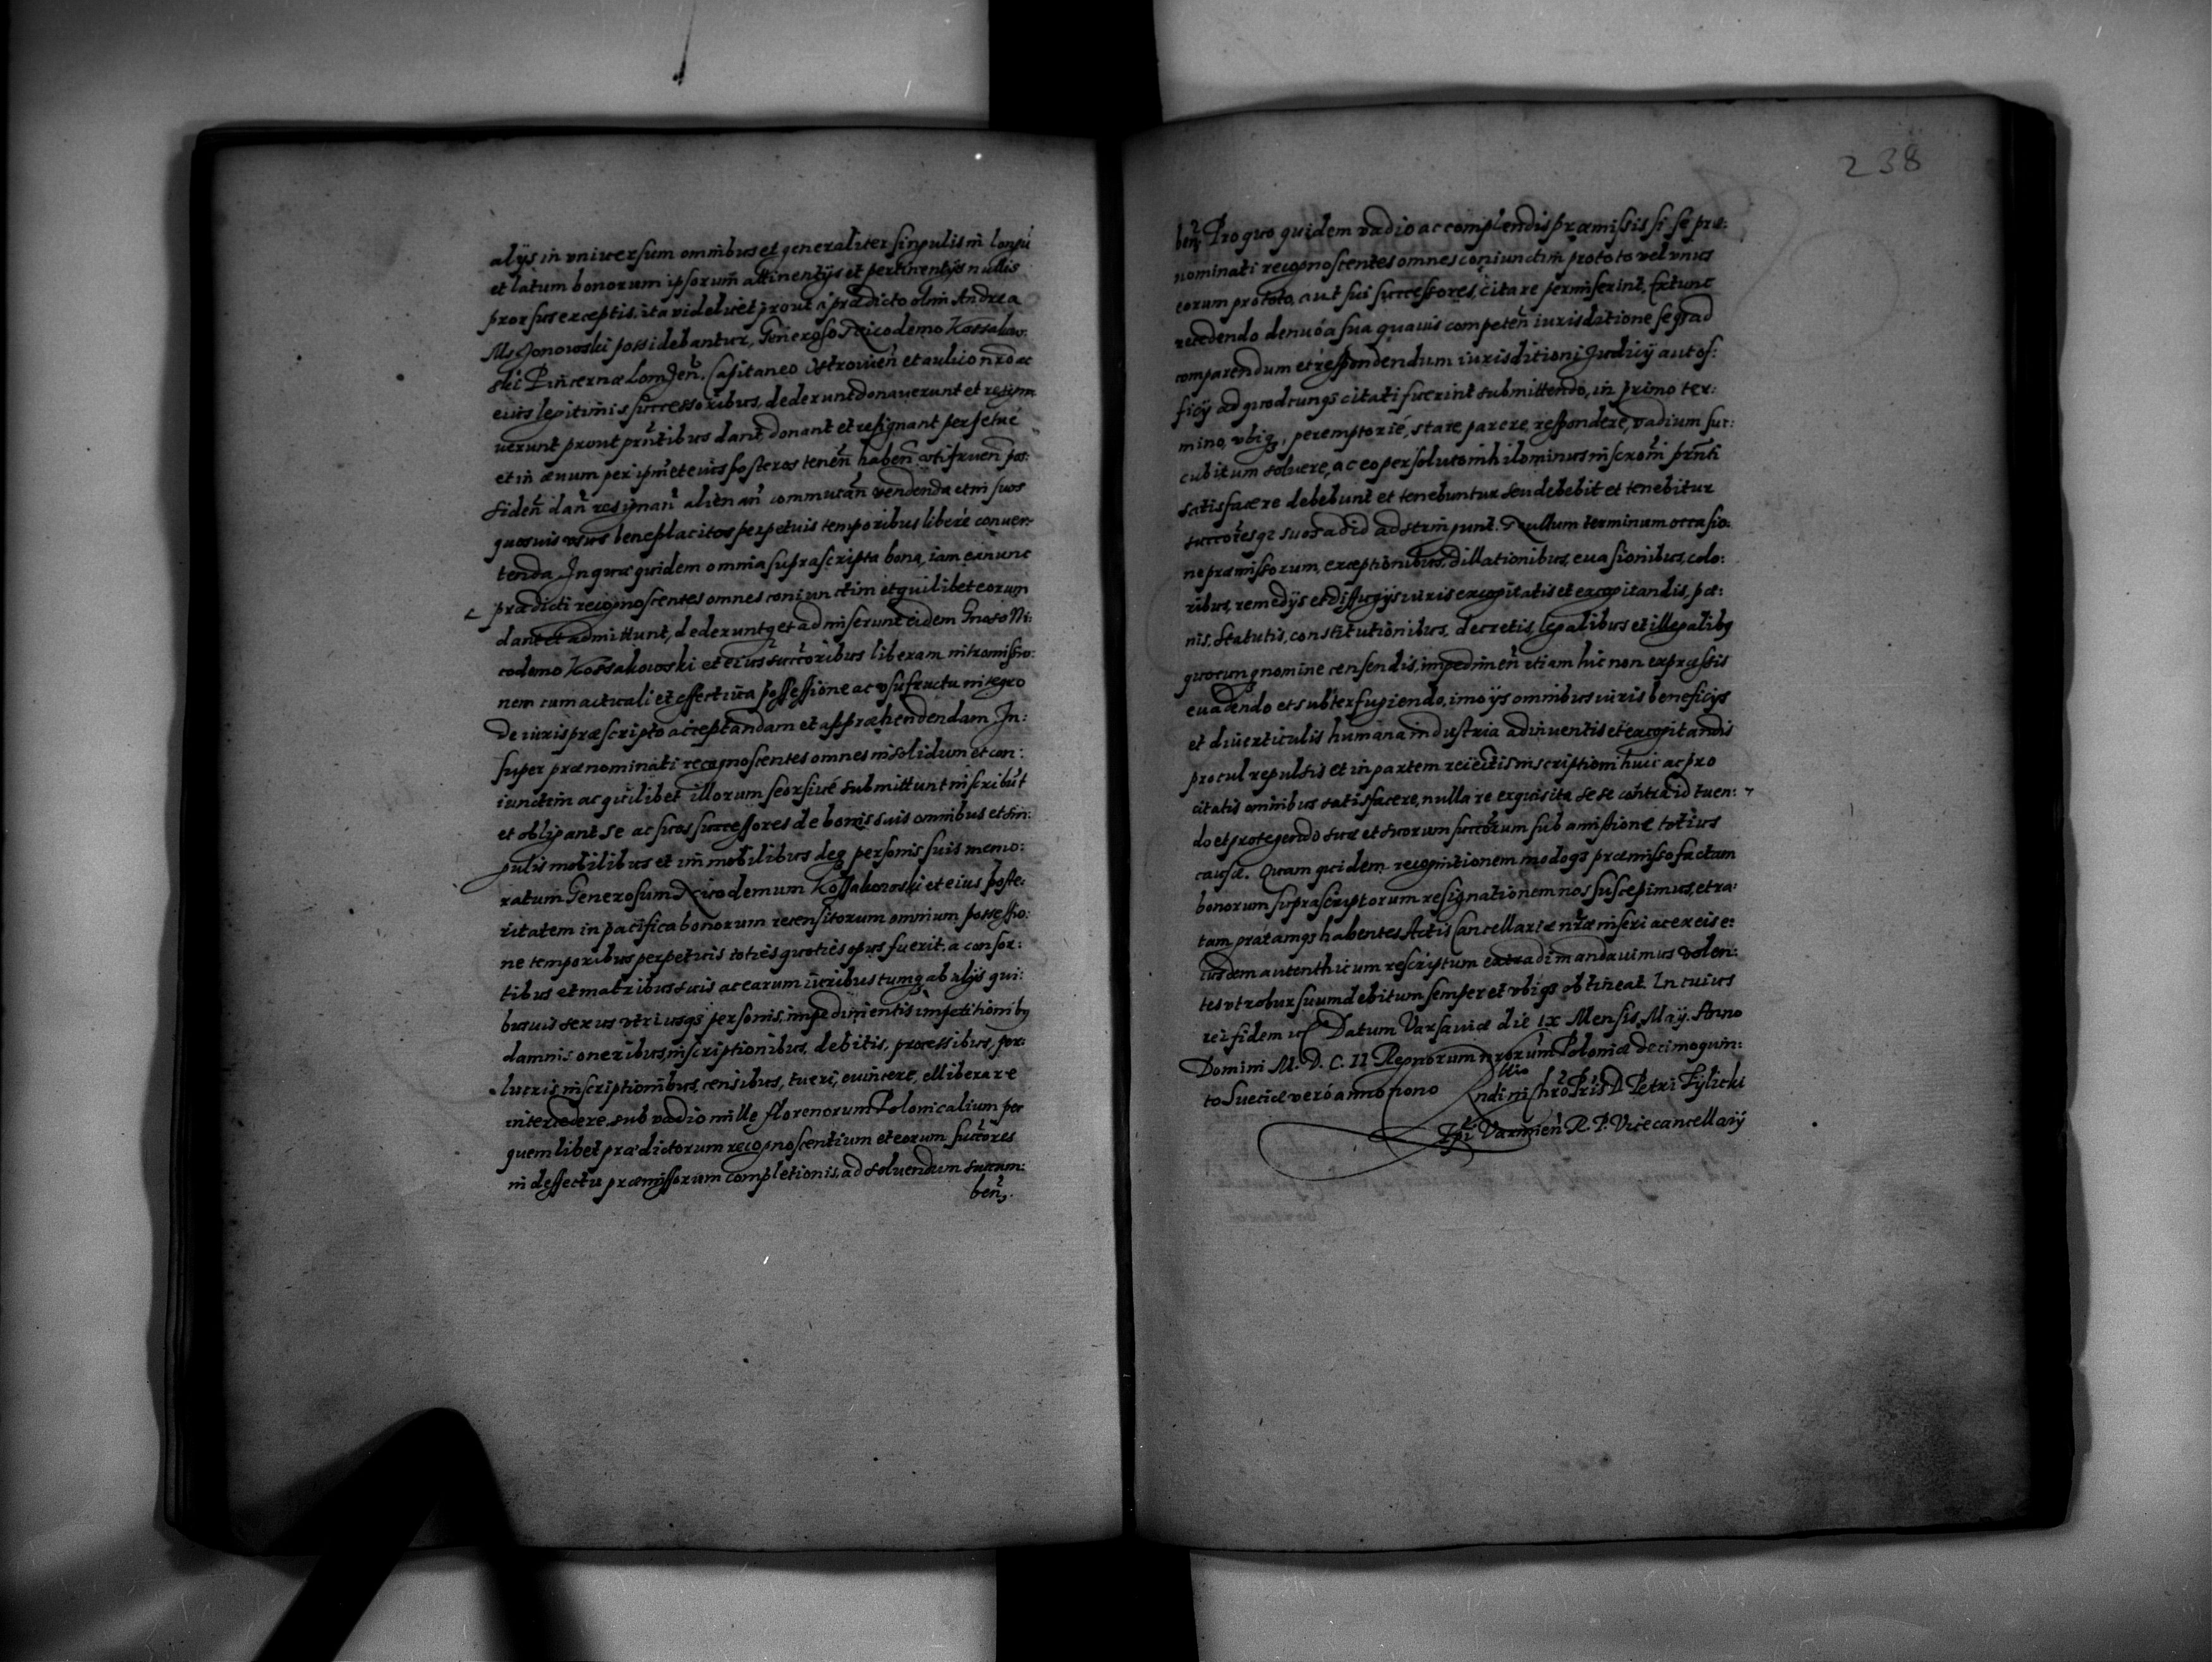 alijs in vniuersum omnibus et generaliter singulis in longū
et latum bonorum ipsorum attinentijs et pertinentijs nullis
prorsus exceptis, ita videlicet prout a prædicto olim Andrea
Mssonowski possidebantur, Generoso Nicodemo Kossakow:
ski Pincernæ Lomzeñ. Capitaneo Ostrouieñ et aulico nr̃o ac
eius legitimis successoribus, dederunt donauerunt et resigna
uerunt prout pr̃ntibus dant donant et resignant perpetué
et in æuum per ipm̃ et eius posteros teneñ habeñ vtifrueñ pos:
sideñ dañ resignañ alienañ commutañ vendenda et in suos
quosuis vsus beneplacitos perpetuis temporibus liberé conuer:
tenda, In quæ quidem omnia suprascripta bona, iam exnunc
prædicti recognoscentes omnes coniunctim et quilibet eorum
dant et admittunt, dederuntq; et admiserunt eidem Gnoso Ni:
codemo Kossakowski et eius succoribus liberam intromissio:
nem cum actuali et effectiua possessione ac vsufructu integro
de iuris præscripto acceptandam et apprǽhendendam, In:
super prænominati recognoscentes omnes insolidum et con:
iunctim ac quilibet illorum seorsiué submittunt inscribūt
et obligant se ac suos successores de bonis suis omnibus et sin:
gulis mobilibus et immobilibus deq; personis suis memo:
ratum Generosum Nicodemum Kossakowski et eius poste:
ritatem in pacifica bonorum recensitorum omnium possessio:
ne temporibus perpetuis toties quoties opus fuerit, a consor:
tibus et matribus suis ac earum iuribus tumq; ab alijs qui:
busuis sexus vtriusq; personis, impedimentis impetitionibq
damnis oneribus, inscriptionibus, debitis, processibus, per:
lucris inscriptionibus, censibus, tueri, euincere, elliberare
intercedere, sub vadio mille florenorum Polonicalium per
quemlibet prædictorum recognoscentium et eorum succores
in deffectu præmissorum completionis, ad soluendum succum:
beñ.
238
beñ, Pro quo quidem vadio ac complendis præmissis si se præ:
nominati recognoscentes omnes coniunctim pro toto vel vnus
eorum pro toto, aut sui successores, citare permiserint, Extunc
recedendo denuó a sua quauis competeñ iurisditione seq; ad
comparendum et respondendum iurisditioni Judicij aut of:
ficij ad quodcunq; citati fuerint submittendo, in primo ter:
mino, vbiq;, peremptorié, stare parere, respondere, vadium suc:
cubitum soluere, ac eo persoluto nihilominus inscroñi pr̃nti
satisfacere debebunt et tenebuntur seu debebit et tenebitur
succoresq; suos ad id adstringunt. Nullum terminum occasio:
ne præmissorum, exceptionibus, dillationibus, euasionibus, colo:
ribus, remedijs et diffugijs iuris excogitatis et excogitandis, pœ:
nis, statutis, constitutionibus, decretis, legalibus et illegalibq
quocunq; nomine censendis, impedimeñ etiam hic non expressis
euadendo et subterfugiendo, imo ijs omnibus iuris beneficijs
et diuerticulis humana industria adinuentis et excogitandis
procul repulsis et in partem reiectis inscriptioni huic ac pro
citatis omnibus satisfacere, nulla re exquisita sese contra id tuen:
do et protegendo suæ et suorum succorum sub amissione totius
causæ. Quam quidem recognitionem modoq; præmisso factam
bonorum suprascriptorum resignationem nos suscepimus, et ra:
tam gratamq; habentes Actis Cancellariæ nr̃æ inseri ac ex eis e:
iusdem autenthicum rescriptum extradi mandauimus volen:
tes vt robur suum debitum semper et vbiq; obtineat. In cuius
rei fidem etc̃ Datum Varsauiæ die IX Mensis Maij. Anno
Domini M. D. C. II Regnorum nrorum Poloniæ decimoquin:
to Sueciæ veró anno nono
ndi in Chro Pris D Petri Tylicki
Epi Varmieñ R. P. Vicecancellarij